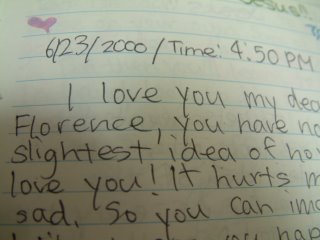 Jesus!!
6/23/2000 / Time: 4:50 PM
I love you my dea
Florence, you have no
slightest idea of ho
love you! It hurts m
sad. So you can im
you hap